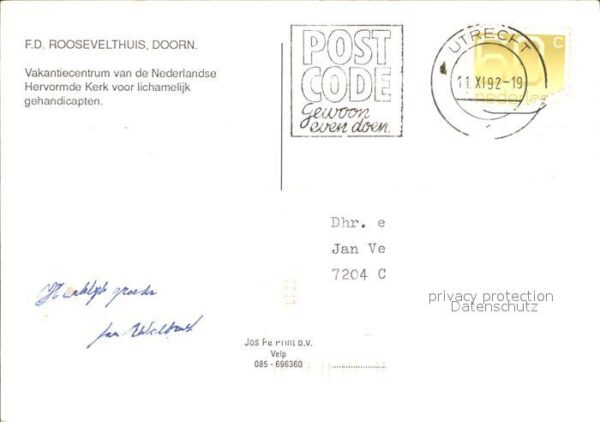 F.D. ROOSEVELTHUIS, DOORN.
Vakantiecentrum van de Nederlandse
Hervormde Kerk voor lichamelijk
gehandicapten.
POST
CODE
Gewoon
even doen.
UTRECHT
11.XI92-19
60 C
nederland
Dhr. e
Jan Ve
7204 C
privacy protection
Datenschutz
Hartelijk groeten
Jan
Jos Pé Print B.V.
Velp
085 - 696360